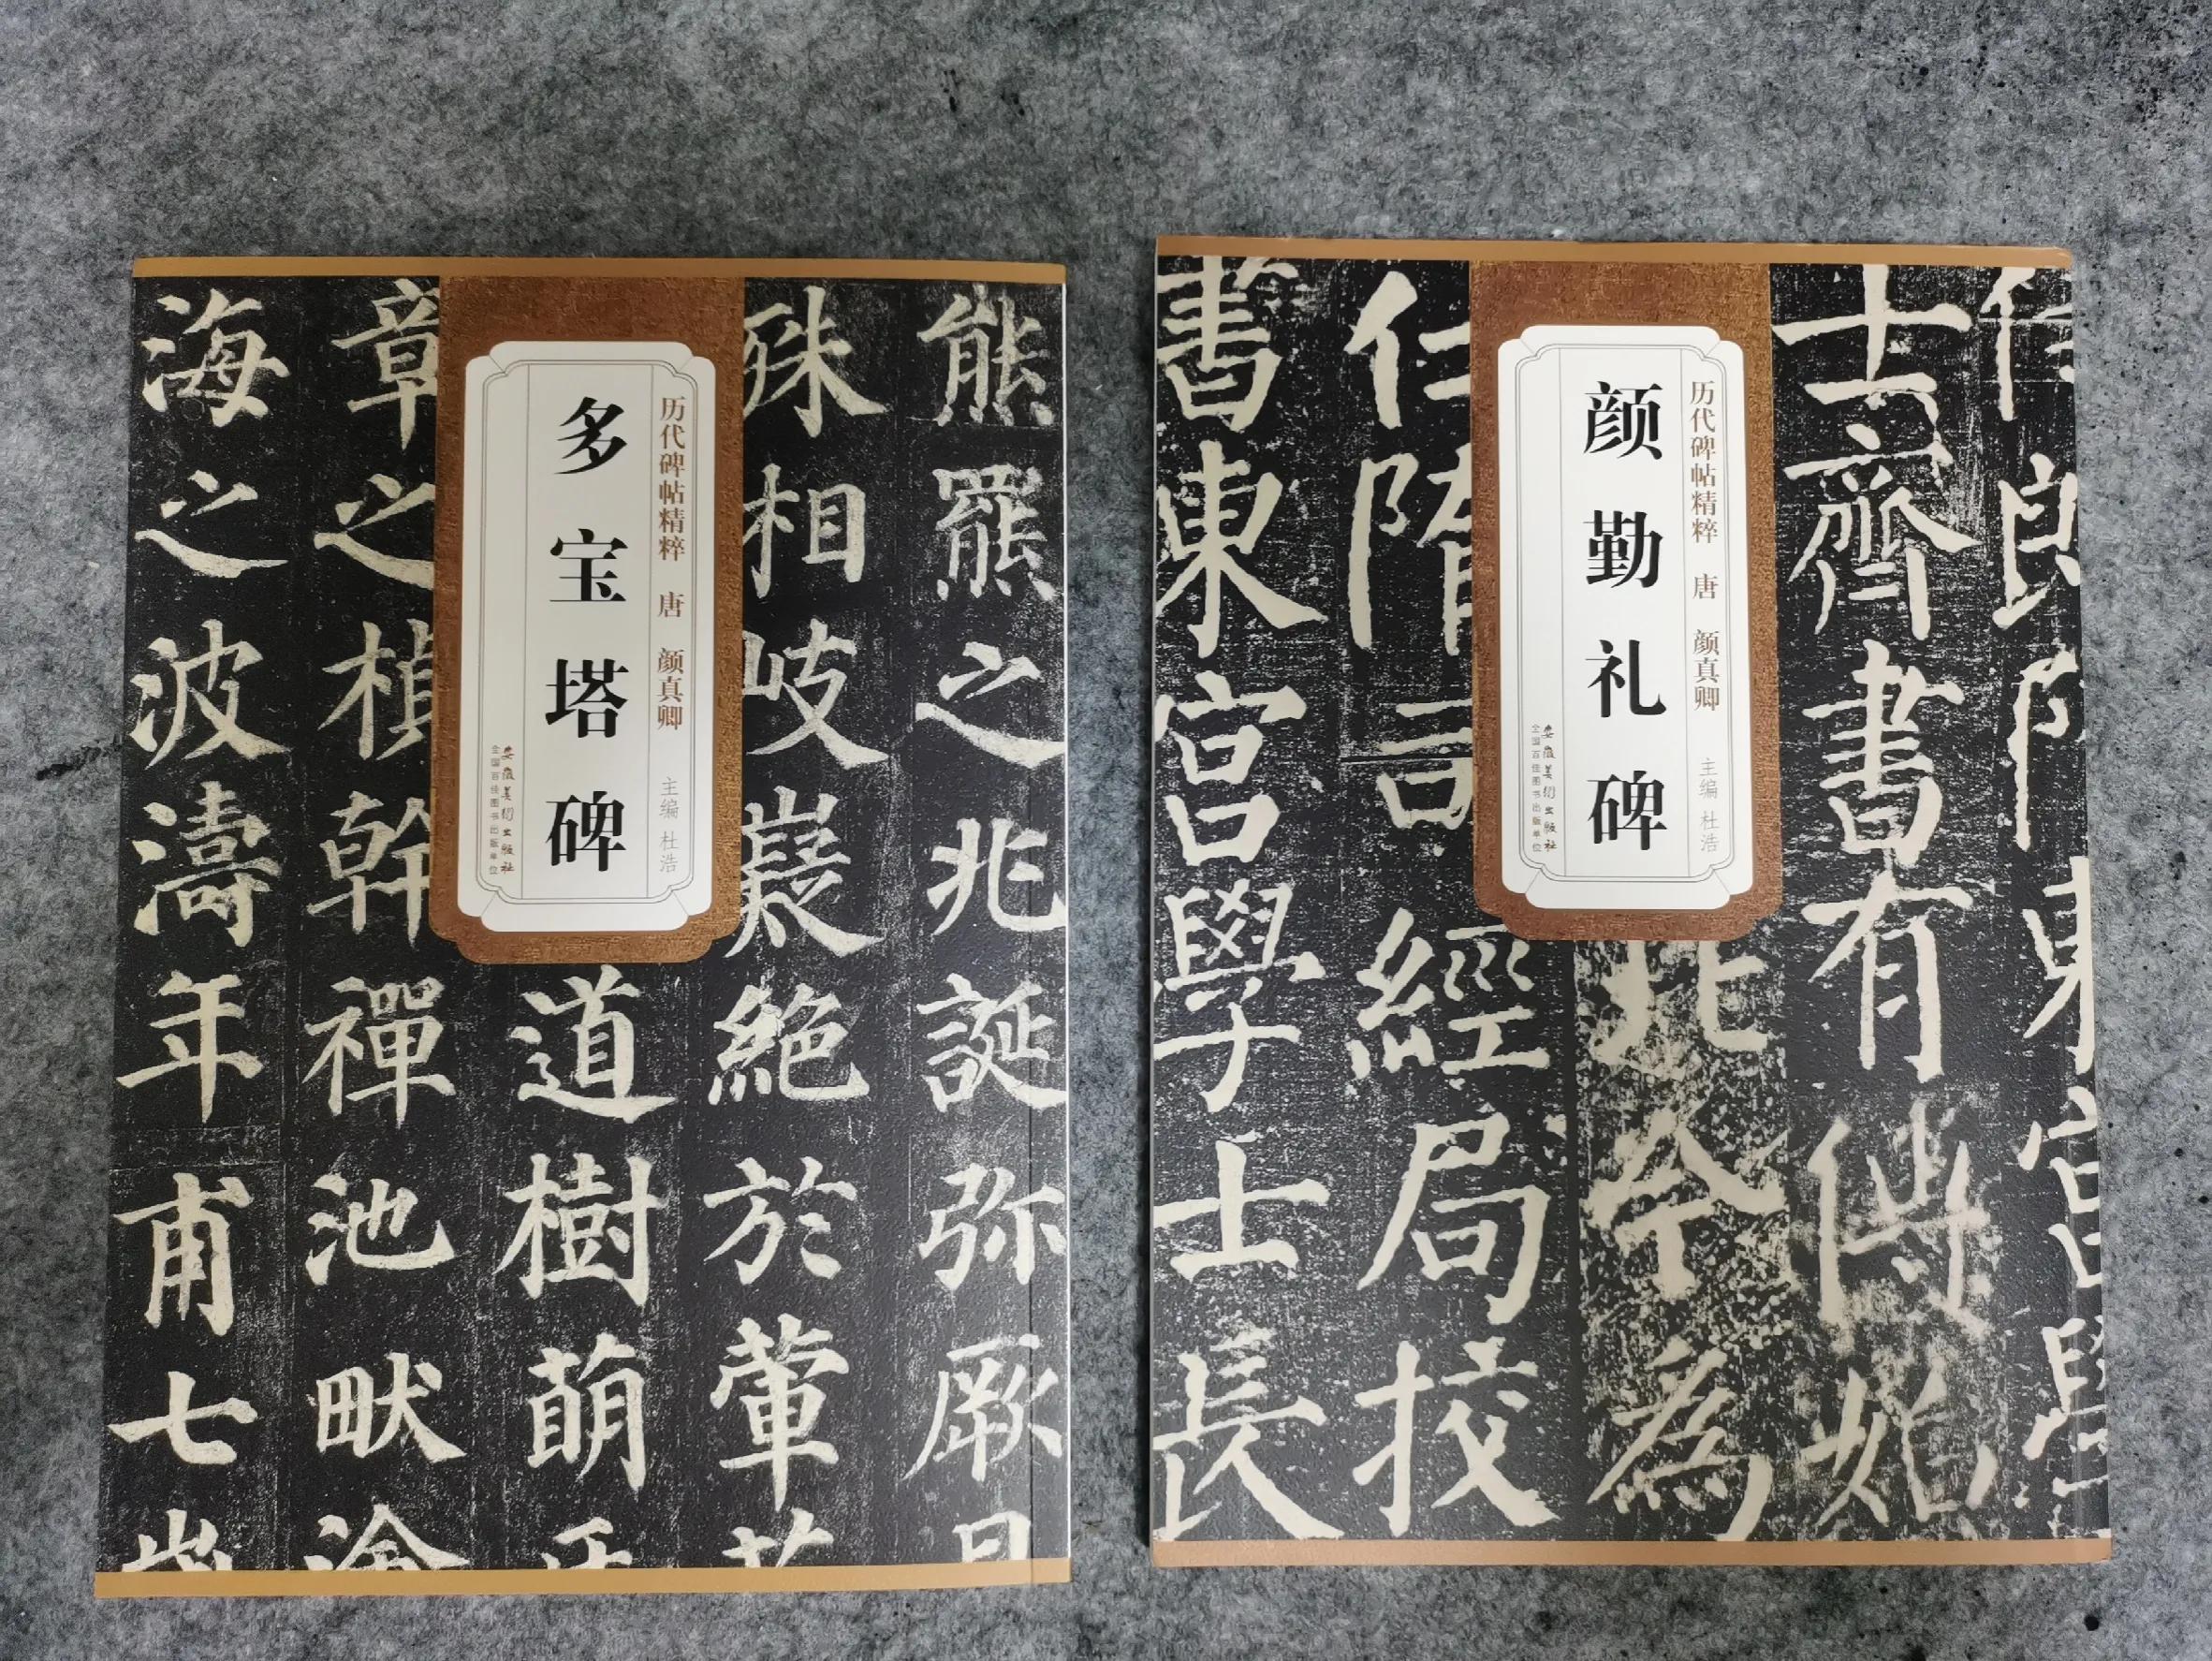 多宝塔碑
历代碑帖精粹 唐 颜真卿 主编 杜浩
安徽美术出版社
全国百佳图书出版单位
熊羆之兆誕弥厥
殊相岐嶷絶於葷
道樹萌
章之楨幹禪池畎
海之波濤年甫七
颜勤礼碑
历代碑帖精粹 唐 颜真卿 主编 杜浩
安徽美术出版社
全国百佳图书出版单位
士齊書有
北令為
任隋司經局挍
書東宮學士長